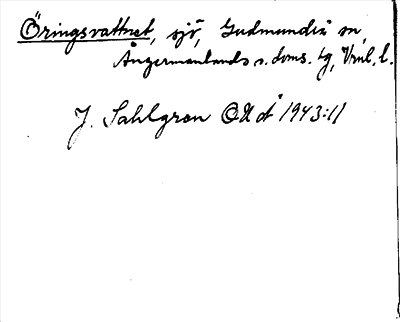 Öringsvattnet, sjö, Gudmundrå sn,
Ångermanlands s. doms. tg, Vnl. l.
J. Sahlgren OUÅ 1943:11